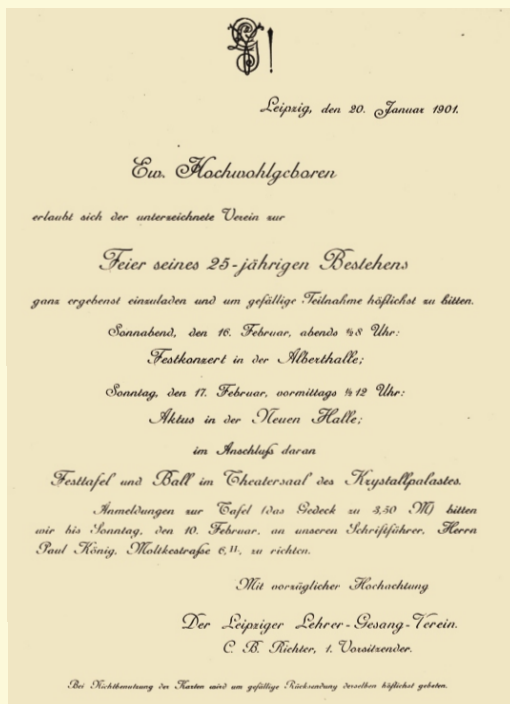 Leipzig, den 20. Januar 1901.
Ew. Hochwohlgeboren
erlaubt sich der unterzeichnete Verein zur
Feier seines 25-jährigen Bestehens
ganz ergebenst einzuladen und um gefällige Teilnahme höflichst zu bitten.
Sonnabend, den 16. Februar, abends ½8 Uhr:
Festkonzert in der Alberthalle;
Sonntag, den 17. Februar, vormittags ½12 Uhr:
Aktus in der Neuen Halle;
im Anschluß daran
Festtafel und Ball im Theatersaal des Krystallpalastes.
Anmeldungen zur Tafel (das Gedeck zu 3,50 M) bitten
wir bis Sonntag, den 10. Februar, an unseren Schriftführer, Herrn
Paul König, Moltkestraße 6, II, zu richten.
Mit vorzüglicher Hochachtung
Der Leipziger Lehrer-Gesang-Verein.
C. B. Richter, 1. Vorsitzender.
Bei Nichtbenutzung der Karten wird um gefällige Rücksendung derselben höflichst gebeten.